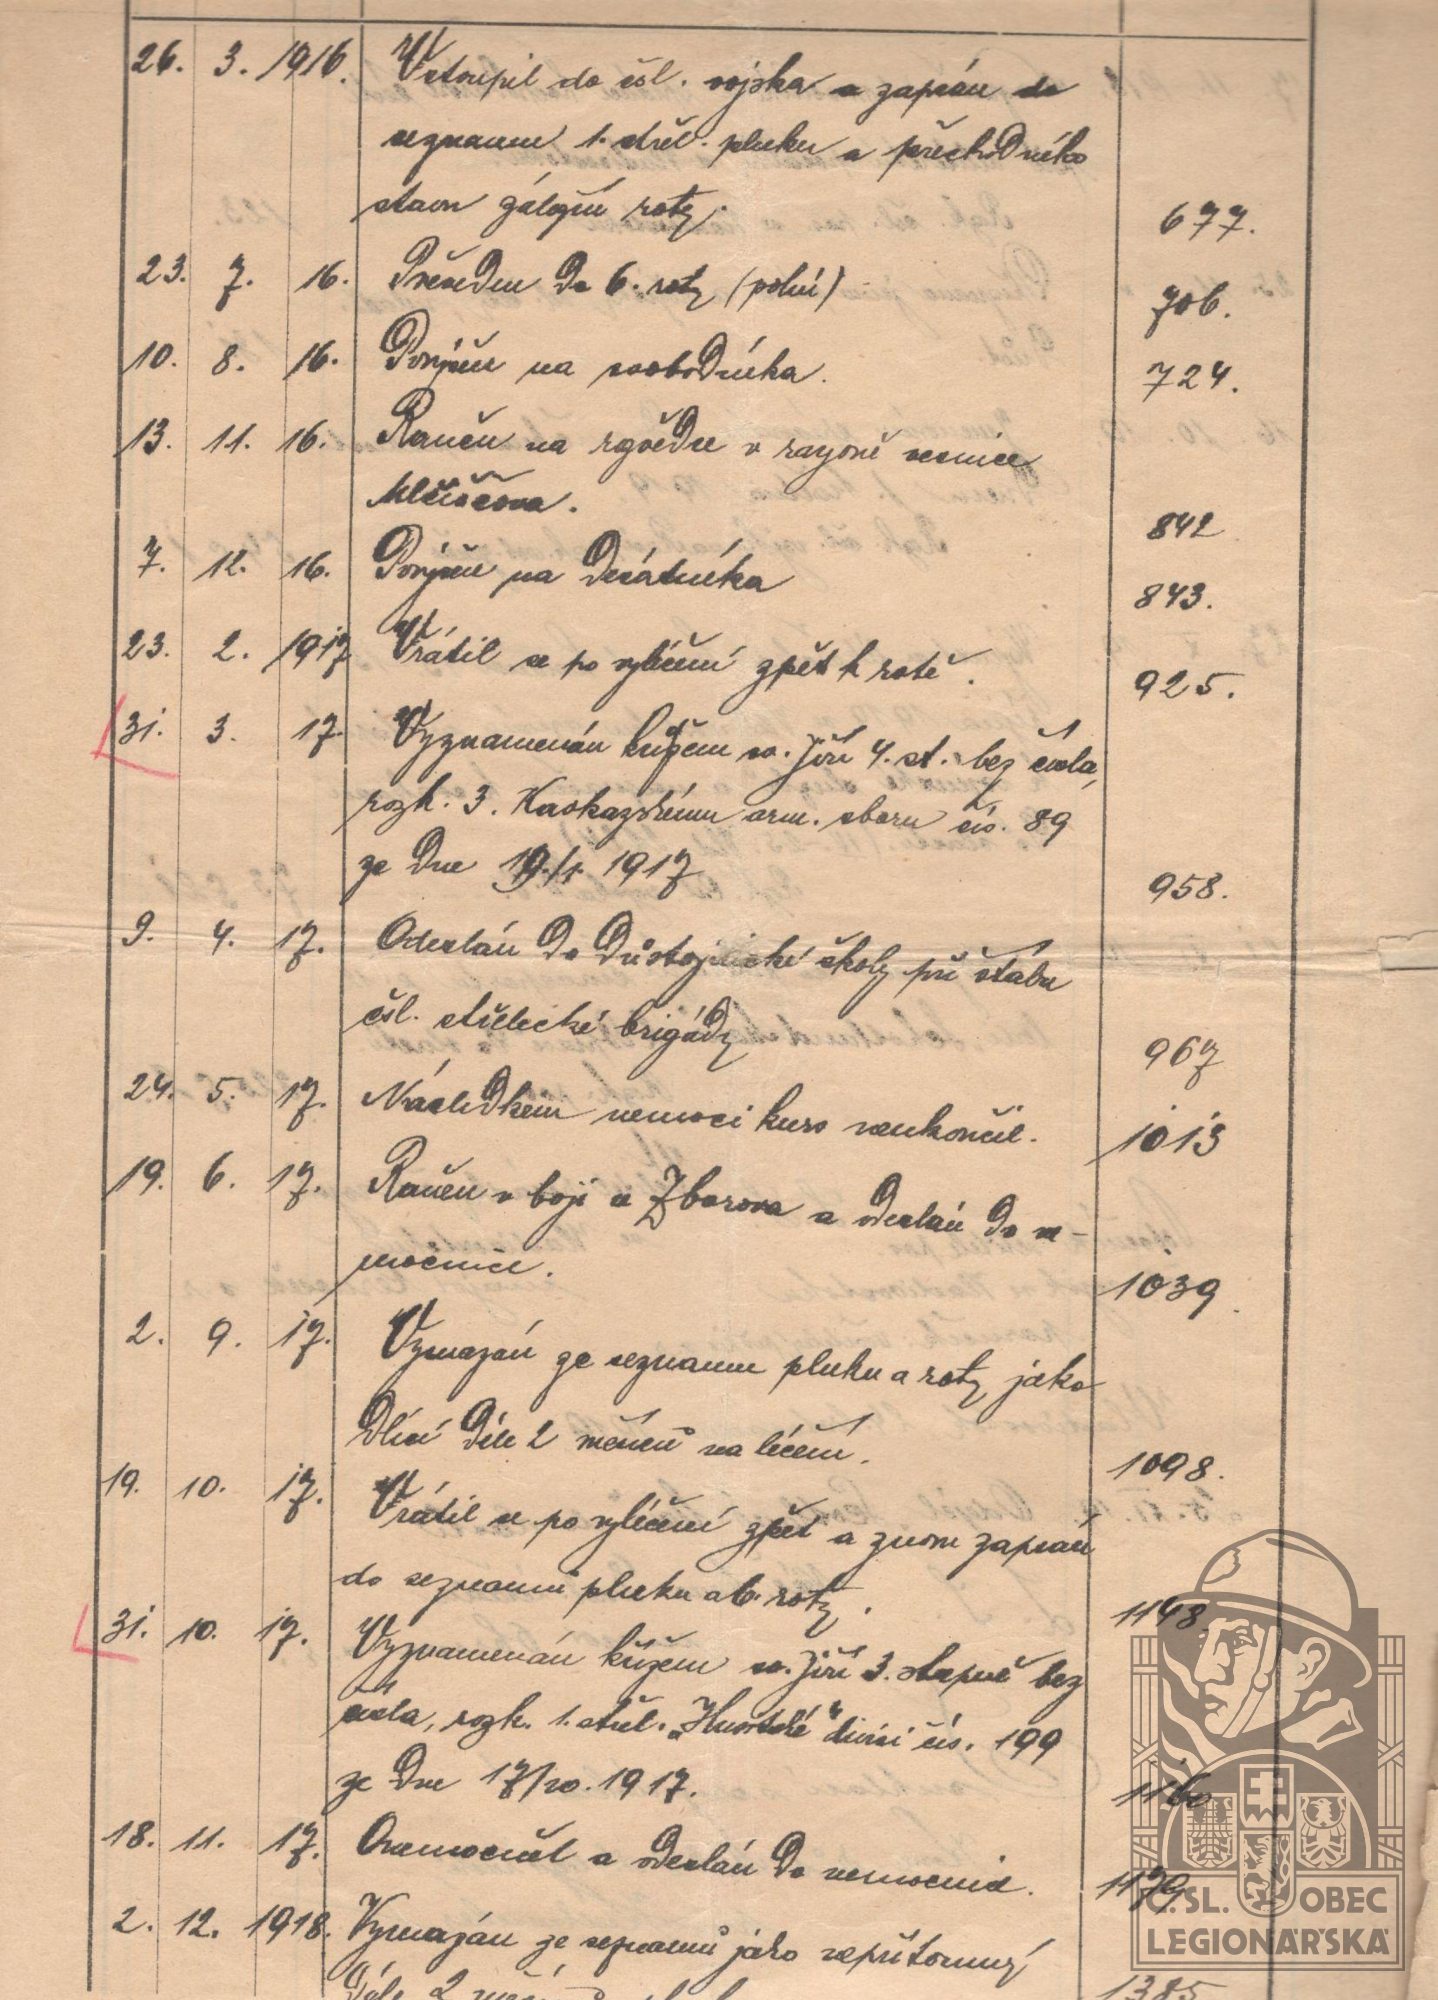 26. 3. 1916. Vstoupil do čsl. vojska a zapsán do
seznamu 1. střel. pluku a přechodného
stavu záložní roty. 677.
23. 7. 16. Převeden do 6. roty (polní) 706.
10. 8. 16. Povýšen na svobodníka. 724.
13. 11. 16. Raněn na rozvědce v rayoně vesnice
842
7. 12. 16. Povýšen na desátníka 843.
23. 2. 1917 Vrátil se po vyléčení zpět k rotě. 925.
31. 3. 17. Vyznamenán křížem sv. Jiří 4. st. bez čísla,
rozk. 3. Kavkazskému arm. sboru čís. 89
ze dne 1917 958.
9. 4. 17. Odeslán do důstojnické školy při štábu
čsl. střelecké brigády 967
24. 5. 17. Následkem nemoci kurs neukončil. 1013
19. 6. 17. Raněn v boji u Zborova a odeslán do ne-
mocnice. 1039.
2. 9. 17. Vymazán ze seznamu pluku a roty jako
dlící déle 2 měsíců na léčení. 1098.
19. 10. 17. Vrátil se po vyléčení zpět a znovu zapsán
do seznamů pluku a 6. roty. 1148
31. 10. 17. Vyznamenán křížem sv. Jiří 3. stupně bez
čísla, rozk. 1. střel. „Husitské" divisi čís. 199
ze dne 17/10. 1917. 1160
18. 11. 17. Onemocněl a odeslán do nemocnice. 1179
2. 12. 1918. Vymazán ze seznamů jako nepřítomný
déle 2 měsíců 1385
Č.SL. OBEC
LEGIONÁŘSKÁ